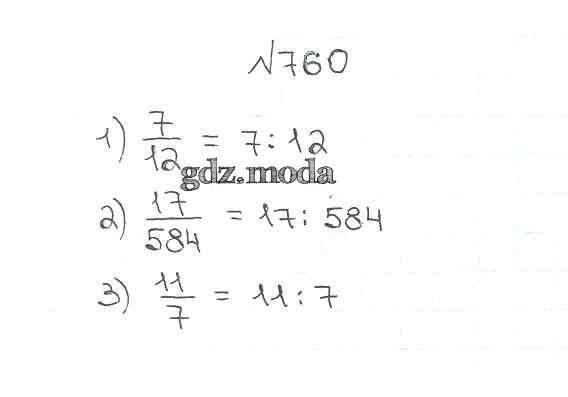 №760
1) 7/12 = 7 : 12
gdz.moda
2) 17/584 = 17 : 584
3) 11/7 = 11 : 7